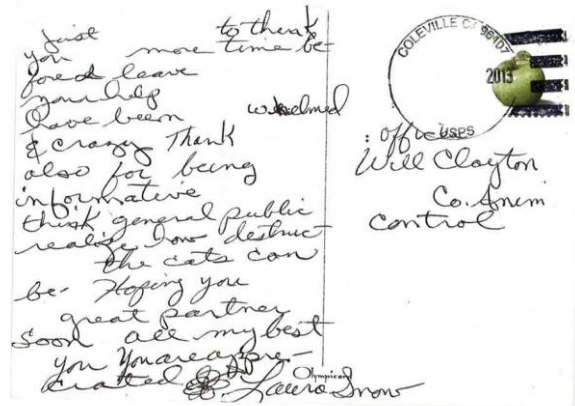 just to thank
you more time be-
fore I leave
your help
have been whelmed
& crazy Thank
also for being
informative
think general public
realize how destruct
the cats can
be- Hoping you
great partner
soon all my best
you You are appre-
ciated Laura Snow
COLEVILLE CA 96107
2013
USPS
: office
Will Clayton
Co. Anim
Control